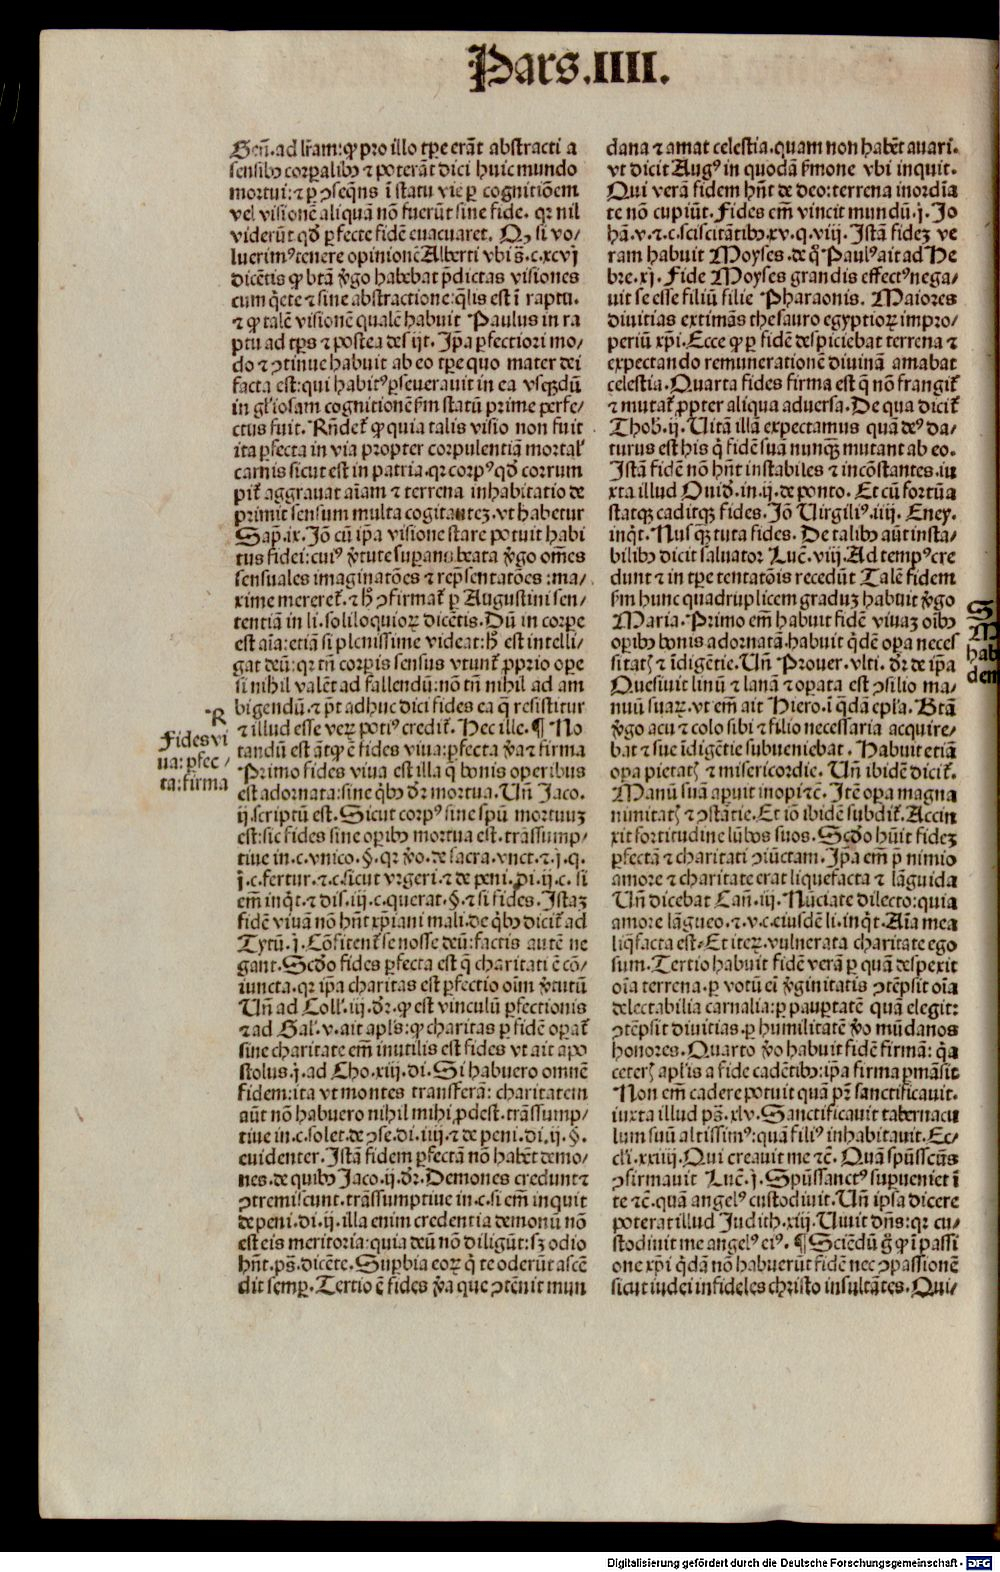 Pars.IIII.
Gen̄.ad lr̄am:ꝙ pro illo tꝑe erāt abstracti a
sensibꝰ corꝑalibꝰ ⁊ poterāt dici huic mundo
mortui:⁊ ꝑ ↄseq̄ns ī statu vie ꝑ cognitiōem
vel visionē aliquā nō fuerūt sine fide. qꝛ nil
viderūt qd̓ ꝑfecte fidē euacuaret. Qꝫ si vo/
luerimꝰ tenere opinionē Alberti vbi s̄.c.xcvj
dicētis ꝙ btā v̓go habebat p̄dictas visiones
cum q̓ete ⁊ sine abstractione:q̄lis est ī raptu.
⁊ ꝙ talē visionē qualē habuit Paulus in ra
ptu ad tp̄s ⁊ postea desijt. Ip̄a ꝑfectiori mo/
do ⁊ ↄtinue habuit ab eo tꝑe quo mater dei
facta est:qui habitꝰ ꝑseuerauit in ea vsqꝫdū
in gl̓iosam cognitionē ẜm statū prime perfe/
ctus fuit. Rn̄det̄ ꝙ quia talis visio non fuit
ita ꝑfecta in via propter corpulentiā mortal̓
carnis sicut est in patria.qꝛ corpꝰ qd̓ corrum
pit̄ aggrauat aīam ⁊ terrena inhabitatio de
primit sensum multa cogitanteꝫ.vt habetur
Sap̄.ix.Iō cū ip̄a visione stare potuit habi
tus fidei:cuiꝰ v̓tute suꝑans beata v̓go om̄es
sensuales imaginatōes ⁊ rep̄sentatōes:ma/
xime mereret̄.⁊ h̓ ↄfirmat̄ ꝑ Augustini sen/
tentiā in li.soliloquioꝝ dicētis.Dū in corꝑe
est aīa:etiā si plenissime videat:h̓ est intelli/
gat deū:qꝛ tn̄ corꝑis sensus vtunt̄ ꝓprio ope
si nihil valēt ad fallendū:nō tn̄ nihil ad am
bigendū.⁊ p̄t adhuc dici fides ea q̄ resistitur
⁊ illud esse veꝝ potiꝰ credit̄. Hec ille.¶ No
tandū est āt ꝙ ē fides viua:ꝑfecta v̓a ⁊ firma
Primo fides viua est illa q̄ bonis operibus
est adornata:sine q̓bꝰ dr̄ mortua. Un̄ Jaco.
ij.scriptū est. Sicut corpꝰ sine spū mortuuꝫ
est:sic fides sine oꝑibꝰ mortua est.trāssump/
tiue in.c.vnico.§.qꝛ v̓o.de sacra.vnct.⁊.j.q.
j.c.fertur.⁊.c.sicut vrgeri.⁊ de peni.di.ij.c. si
em̄ inq̓t.⁊ dis.iij.c.querat.§.⁊ si fides. Istaꝫ
fidē viuā nō hn̄t xp̄iani mali.de q̓bꝰ dicit̄ ad
Tytū.j. Cōfitent̄ se nosse deū:factis autē ne
gant. Scd̓o fides ꝑfecta est q̄ charitati ē cō/
iuncta.qꝛ ip̄a charitas est ꝑfectio oīm v̓tutū
Un̄ ad Coll̓.iij.dr̄.ꝙ est vinculū ꝑfectionis
⁊ ad Gal̓.v.ait apl̓s:ꝙ charitas ꝑ fidē oꝑat̄
sine charitate em̄ inutilis est fides vt ait apo
stolus.j.ad Cho.xiij.di. Si habuero omnē
fidem:ita vt montes transferā: charitatem
aūt nō habuero nihil mihi ꝓdest.trāssump/
tiue in.c.solet.de ↄse.di.iiij.⁊ de peni.di.ij.§.
euidenter. Istā fidem ꝑfectā nō habēt demo/
nes.de quibꝰ Jaco.ij.dr̄. Demones credunt ⁊
ↄtremiscunt.trāssumptiue in.c.si em̄ inquit
de peni.di.ij.illa enim credentia demonū nō
est eis meritoria:quia deū nō diligūt:sꝫ odio
hn̄t.ps̄.dicēte. Suꝑbia eoꝝ q̓ te oderūt ascē
dit semꝑ. Tertio ē fides v̓a que ↄtēnit mun
R
Fides vi
ua:ꝑfec/
ta:firma
dana ⁊ amat celestia.quam non habēt auari.
vt dicit Augꝰ in quodā ẜmone vbi inquit.
Qui verā fidem hn̄t de deo:terrena inordīa
te nō cupiūt. Fides em̄ vincit mundū.j. Jo
hā.v.⁊.c.sciscitātibꝰ.xv.q.viij. Istā fideꝫ ve
ram habuit Moyses.de q̓ Paulꝰ ait ad He
bre.xj. Fide Moyses grandis effectꝰ nega/
uit se esse filiū filie Pharaonis. Maiores
diuitias extimās thesauro egyptioꝝ impro/
periū xp̄i. Ecce ꝙ ꝑ fidē despiciebat terrena ⁊
expectando remunerationē diuinā amabat
celestia. Quarta fides firma est q̄ nō frangit̄
⁊ mutat̄ ꝓpter aliqua aduersa. De qua dicit̄
Thob.ij. Uitā illā expectamus quā deꝰ da/
turus est his q̓ fidē suā nunqꝫ mutant ab eo.
Istā fidē nō hn̄t instabiles ⁊ incōstantes.iu
xta illud Ouid̓.in.ij.de ponto. Et cū fortūa
statqꝫ caditqꝫ fides. Iō Uirgiliꝰ.iiij. Eney.
inq̓t. Nusqꝫ tuta fides. De talibꝰ aūt insta/
bilibꝰ dicit saluator Luc̄.viij. Ad tempꝰ cre
dunt ⁊ in tꝑe tentatōis recedūt Talē fidem
ẜm hunc quadruplicem graduꝫ habuit v̓go
Maria. Primo em̄ habuit fidē viuaꝫ oībꝰ
oꝑibꝰ bonis adornatā.habuit q̓dē oꝑa neces
sitatꝭ ⁊ īdigētie. Un̄ Prouer.vlti. dr̄ de ip̄a
Quesiuit linū ⁊ lanā ⁊ oꝑata est ↄsilio ma/
nuū suaꝝ.vt em̄ ait Hiero.ī q̓dā epl̓a. Btā
v̓go acu ⁊ colo sibi ⁊ filio necessaria acquire/
bat ⁊ sue īdigētie subueniebat. Habuit etiā
oꝑa pietatꝭ ⁊ misericordie. Un̄ ibidē dicit̄.
Manū suā aꝑuit inopi ⁊c̄. Itē oꝑa magna
nimitatꝭ ⁊ ↄstātie. Et iō ibidē subdit̄. Accin
xit fortitudine lūbos suos. Scd̓o hūit fideꝫ
ꝑfectā ⁊ charitati ↄiūctam. Ip̄a em̄ p̄ nimio
amore ⁊ charitate erat liquefacta ⁊ lāguida
Un̄ dicebat Can̄.iij. Nūciate dilecto:quia
amore lāgueo.⁊.v.c.eiusdē li.inq̓t. Aīa mea
liq̄facta est. Et iteꝝ.vulnerata charitate ego
sum. Tertio habuit fidē verā ꝑ quā despexit
oīa terrena.ꝑ votū ei v̓ginitatis ↄtēpsit oīa
delectabilia carnalia:ꝑ pauꝑtatē quā elegit:
ↄtēpsit diuitias.ꝑ humilitatē v̓o mūdanos
honores. Quarto v̓o habuit fidē firmā: q̓a
ceterꝭ apl̓is a fide cadētibꝰ:ip̄a firma ꝑmāsit
Non em̄ cadere potuit quā pr̄ sanctificauit.
iuxta illud ps̄.xlv. Sanctificauit tabernacu
lum suū altissimꝰ:quā filiꝰ inhabitauit. Ec/
cl̓i.xxiiij. Qui creauit me ⁊c̄. Quā spūssctūs
ↄfirmauit Luc̄.j. Spūssanctꝰ suꝑueniet ī
te ⁊c̄.quā angelꝰ custodiuit. Un̄ ip̄sa dicere
poterat illud Judith.xiij. Uiuit dn̄s:qꝛ cu/
stodiuit me angelꝰ eiꝰ. ¶ Sciēdū g̓ ꝙ ī passi
one xp̄i q̓dā nō habuerūt fidē nec ↄpassionē
sicut iudei infideles christo insultātes. Qui/
S
M
hab
dem
Digitalisierung gefördert durch die Deutsche Forschungsgemeinschaft - DFG